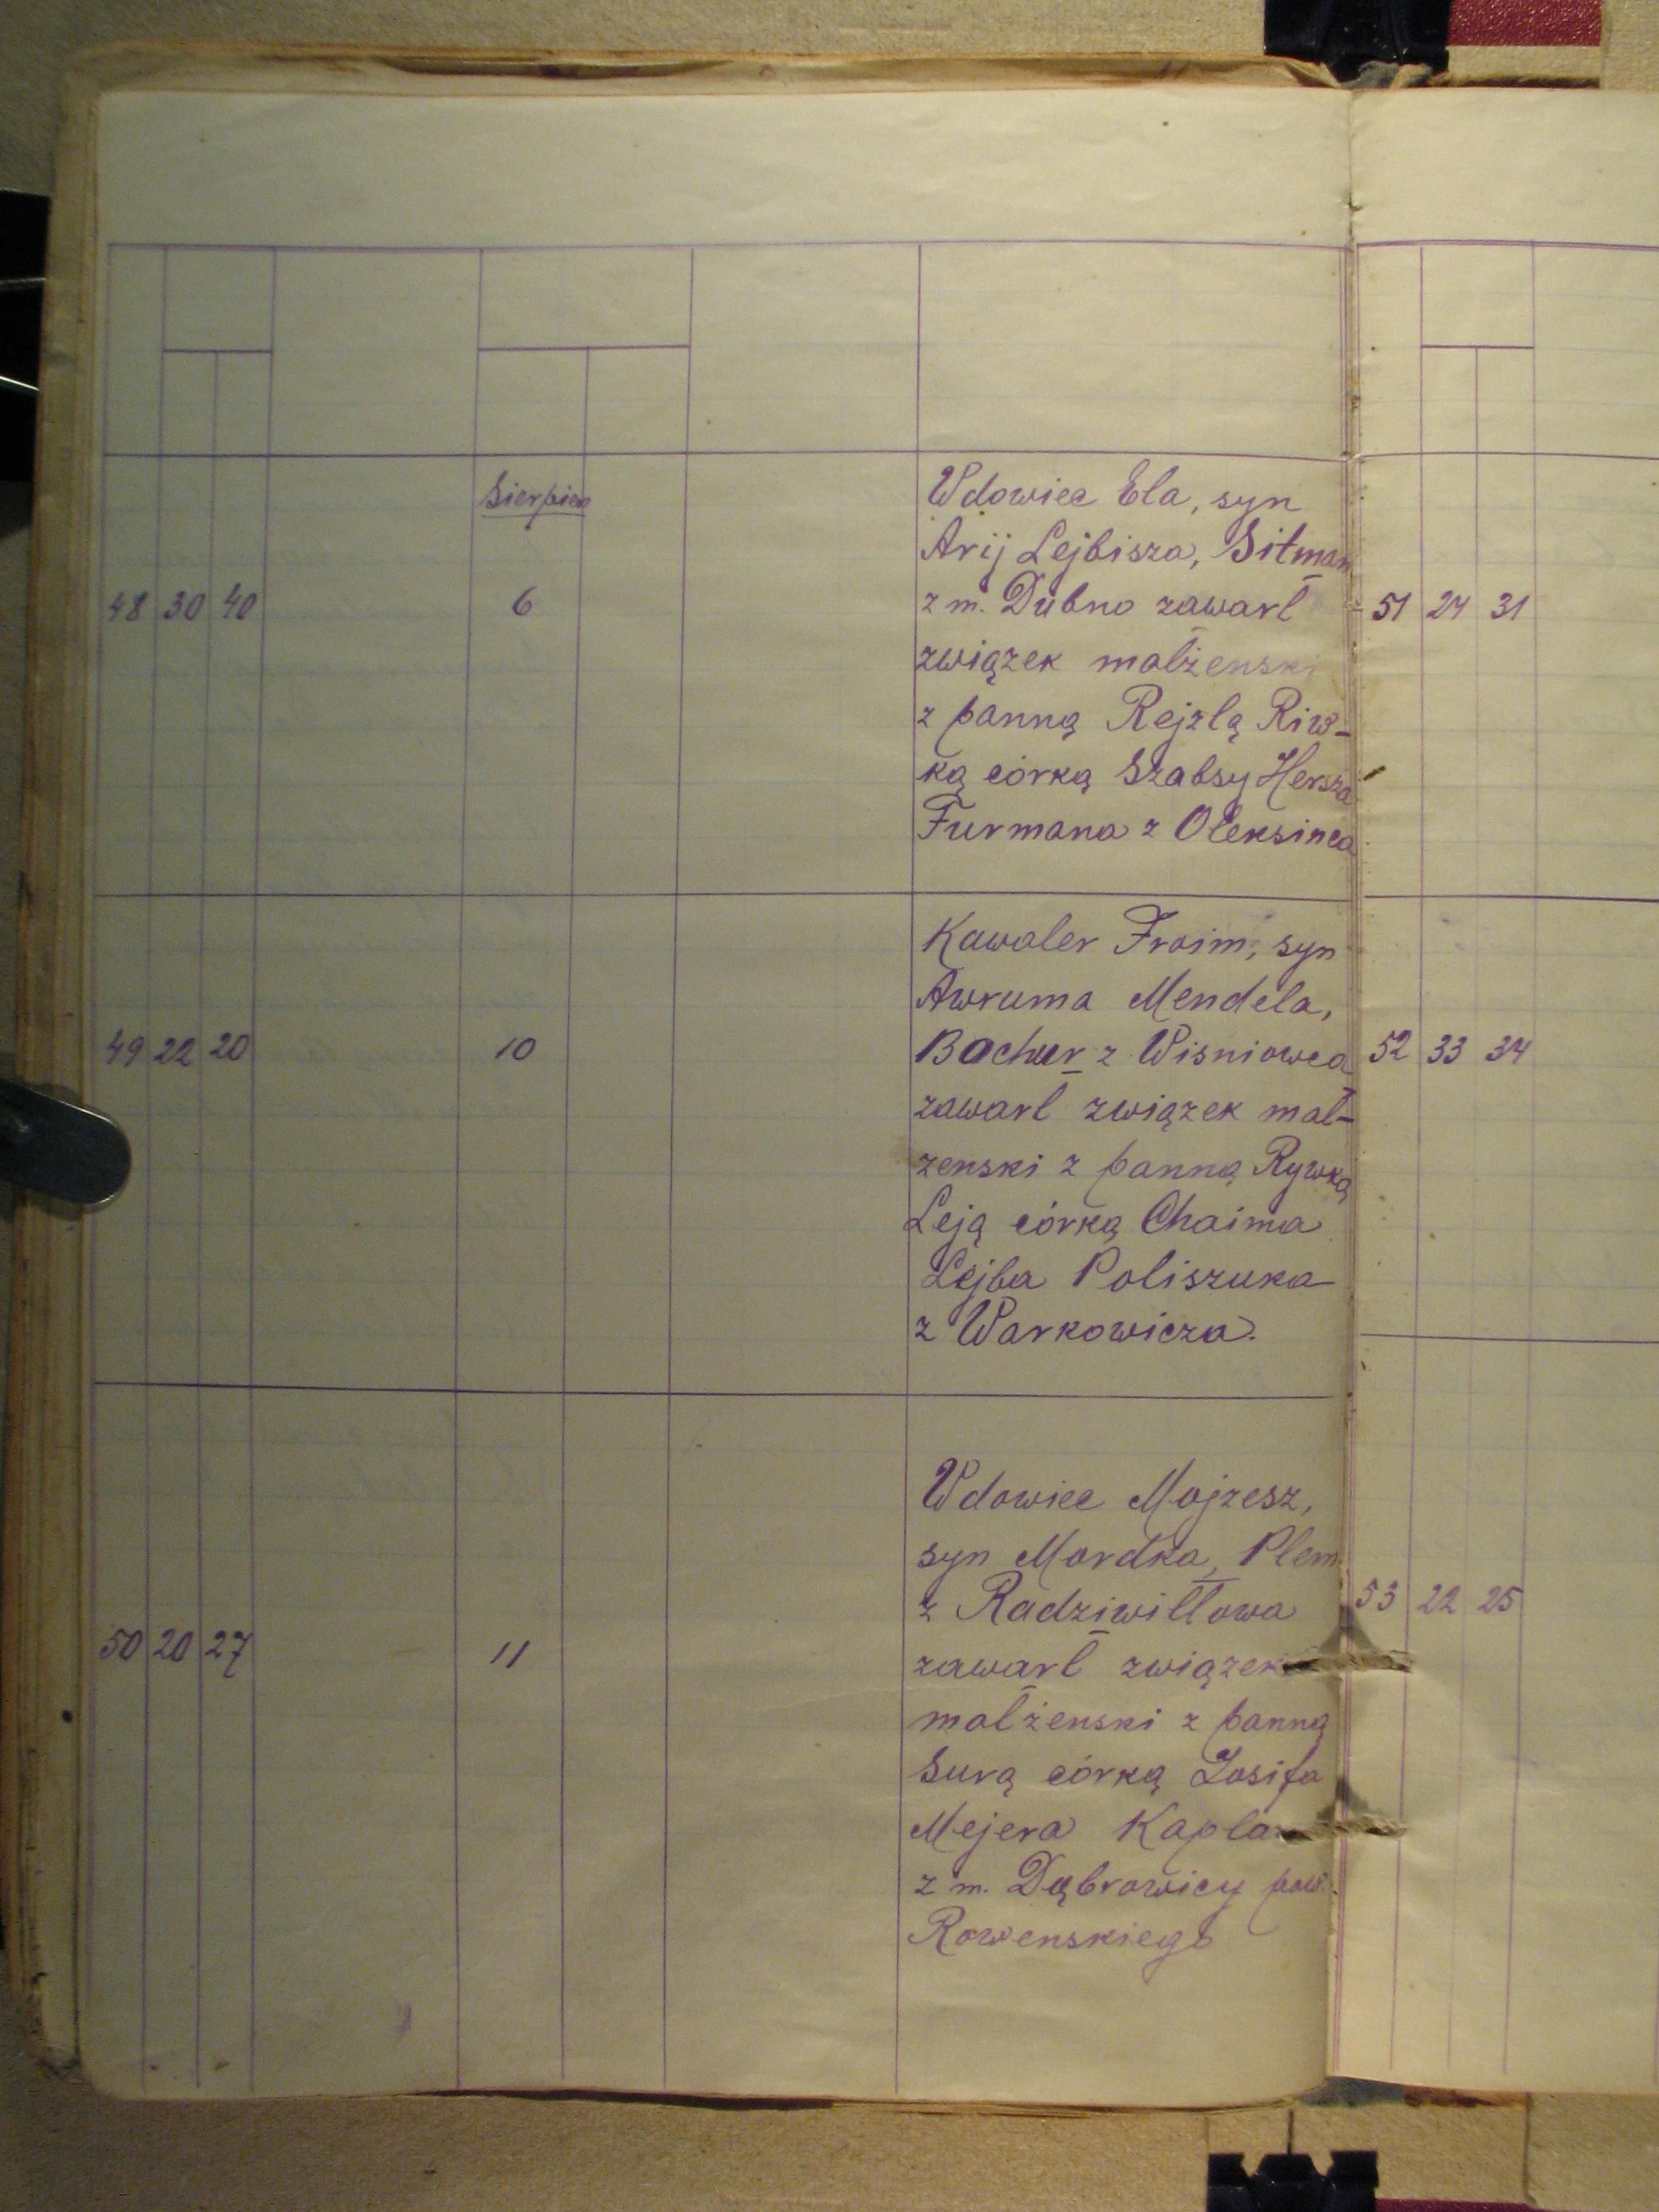 Sierpień
48 30 40 6
Wdowiec Ela, syn
Arij Lejbisza, Sitman
z m. Dubno zawarł
związek małżenski
z panną Rejzlą Riw-
ką córką Szabsy Hersza
Furmana z Oleksinca
49 22 20 10
Kawaler Froim, syn
Awruma Mendela,
Bochur z Wisniowca
zawarł związek mał-
zenski z panną Rywką
Leją córką Chaima
Lejba Poliszuka
z Warkowicza.
50 20 27 11
Wdowiec Mojzesz,
syn Mordka, Plem
z Radziwiłłowa
zawarł związek
małżenski z panną
Surą córką Josifa
Mejera
z m. Dąbrowicy pow.
Rowenskiego
51 24 31
52 33 34
53 22 25